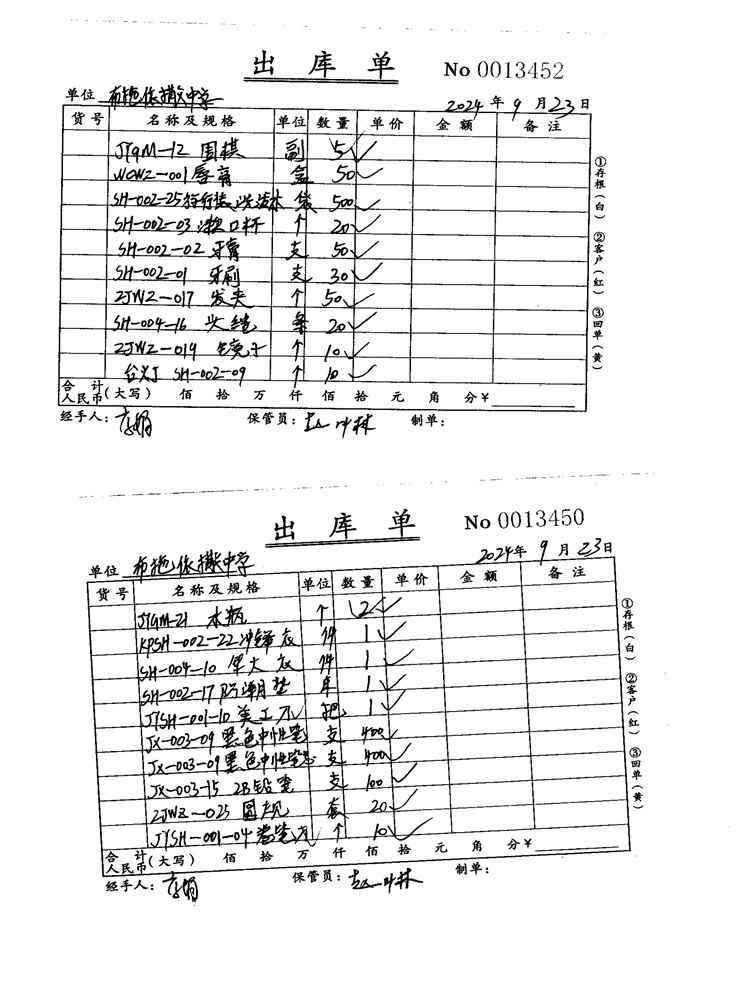 出 库 单 No 0013452
单位 布拖依撒中学 2024年 9月23日
货号 名称及规格 单位 数量 单价 金额 备注
JYGM-12 围棋 副 5 ✓
WCWZ-001 唇膏 盒 50 ✓
SH-002-25 旅行装洗沐 袋 500 ✓
SH-002-03 漱口杯 个 20 ✓
SH-002-02 牙膏 支 50 ✓
SH-002-01 牙刷 支 30 ✓
ZJWZ-017 发夹 个 50 ✓
SH-004-16 头绳 条 20 ✓
ZJWZ-019 个 10 ✓
台灯 SH-002-09 个 10 ✓
合计人民币(大写) 佰 拾 万 仟 佰 拾 元 角 分 ¥
经手人: 保管员: 叶林 制单:
①存根(白) ②客户(红) ③回单(黄)
出 库 单 No 0013450
单位 布拖依撒中学 2024年 9月23日
货号 名称及规格 单位 数量 单价 金额 备注
JYGM-21 水瓶 个 2 ✓
KPSH-002-22 冲锋衣 件 1 ✓
SH-004-10 军大衣 件 1 ✓
SH-002-17 防潮垫 床 1 ✓
JYSH-001-10 美工刀 把 1 ✓
JX-003-09 黑色中性笔 支 400 ✓
JX-003-09 黑色中性笔芯 支 400 ✓
JX-003-15 2B铅笔 支 100 ✓
ZJWZ-025 圆规 套 20 ✓
JYSH-001-04 卷笔刀 个 10 ✓
合计人民币(大写) 佰 拾 万 仟 佰 拾 元 角 分 ¥
经手人: 保管员: 叶林 制单:
①存根(白) ②客户(红) ③回单(黄)